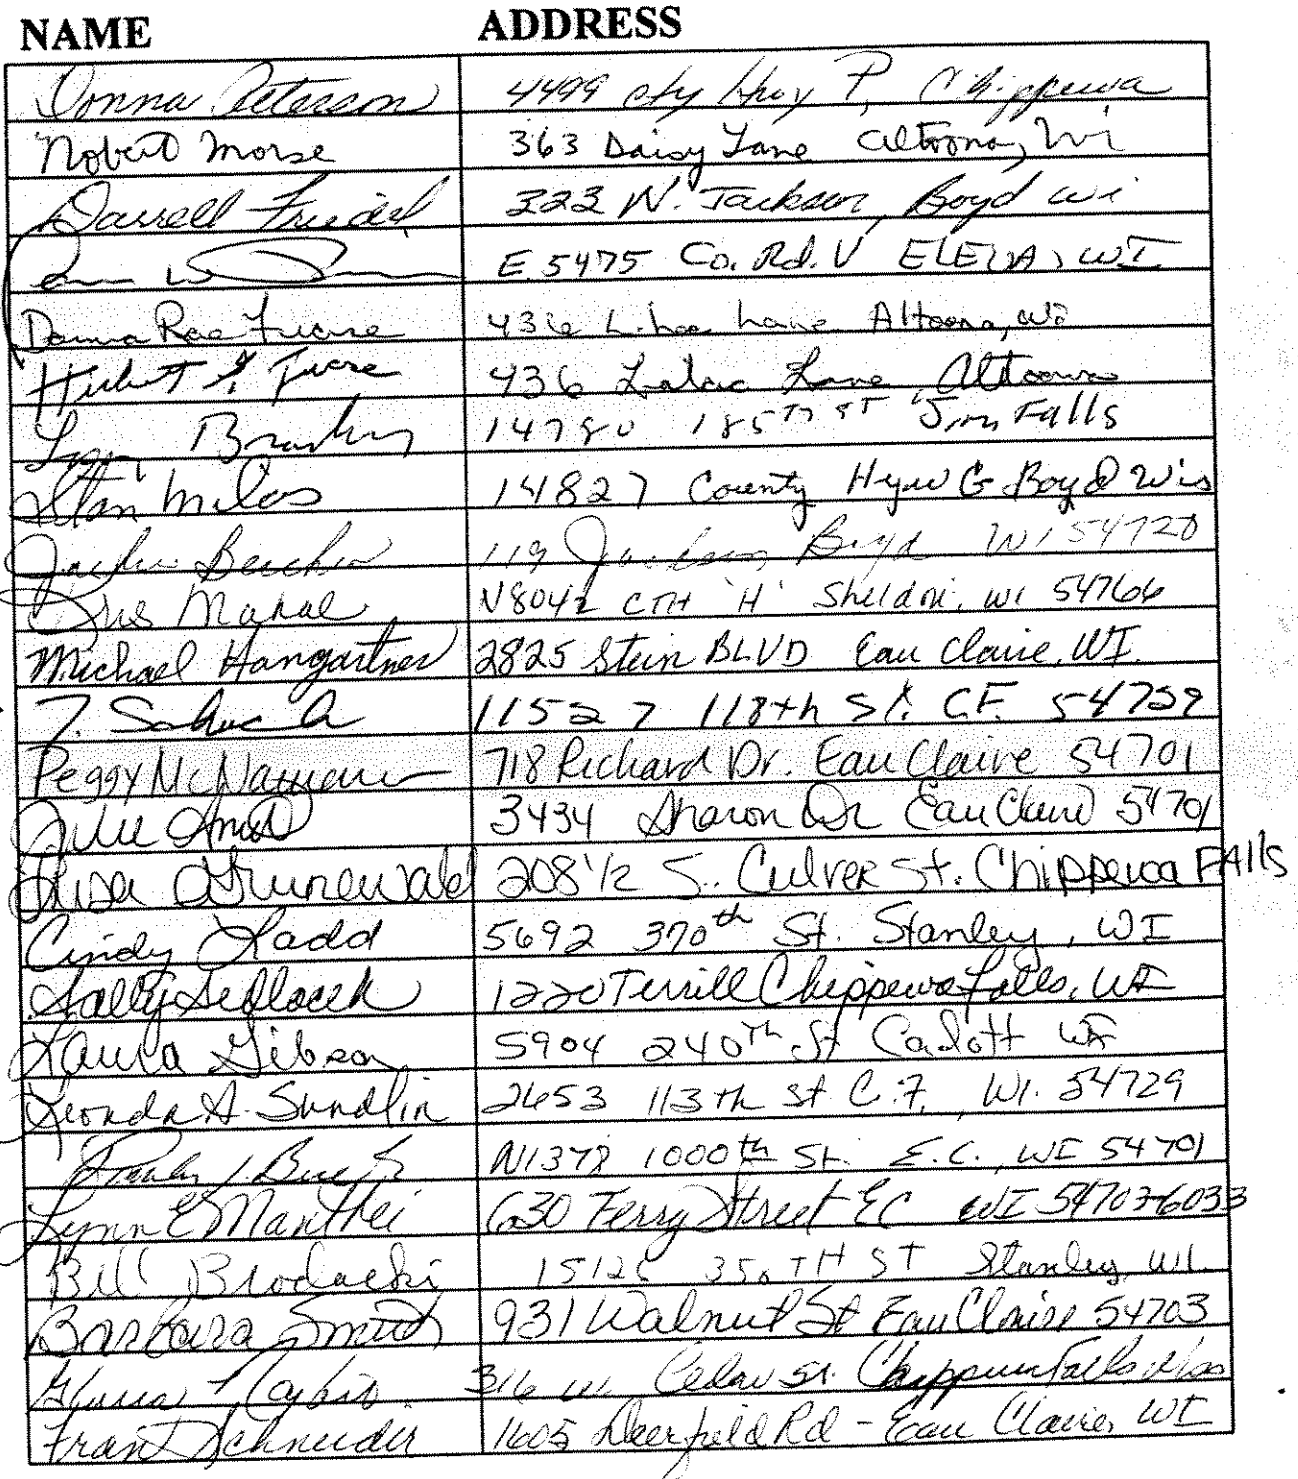 NAME ADDRESS
Donna Peterson 4499 cty Hwy P, Chippewa
Robert Morse 363 Daisy Lane Altoona, Wi
Darrell 322 N. Jackson, Boyd Wi
E 5475 Co. Rd. V ELEVA, WI
Donna Rae 436 Lane Altoona, Wi
436 Lane, Altoona
14780 185TH ST Jim Falls
Stan Milas 14827 County Hyw G Boyd Wis
119 Jackson, Boyd WI 54720
N8042 CTH 'H' Sheldon, WI 54766
Michael Hangartner 2825 Stein BLVD Eau Claire, WI.
T. 11527 118th St. C.F. 54729
Peggy McNamara 718 Richard Dr. Eau Claire 54701
Julie 3434 Sharon Dr Eau Claire 54701
Lisa Grunewald 208 1/2 S. Culver St. Chippewa FAlls
Cindy Ladd 5692 370th St. Stanley, WI
Sally Sedlacek 1220 Terrill Chippewa Falls, WI
Laura Gibson 5904 240Th St Cadott WI
A. Sundlin 2653 113th st. C.F., WI. 54729
N1378 1000th St. E.C., WI 54701
Lynn E Manthei 630 Ferry Street EC WI 54703-6033
Bill 350TH ST Stanley, WI.
Barbara Smith 931 Walnut St Eau Claire 54703
316 W. Cedar St. Chippewa Falls Wis
Fran Schneider 1605 Deerfield Rd - Eau Claire, WI